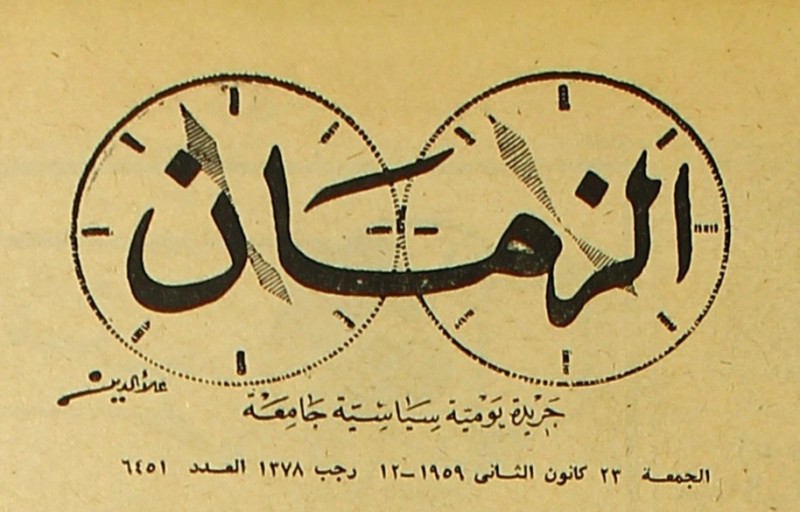 الزمان
علاءالدين
جَرْيَدة يَوْميَّة سِيَاسِيَّة جَامِعَة
الجمعة ٢٣ كانون الثانى ١٩٥٩–١٢ رجب ١٣٧٨ العدد ٦٤٥١